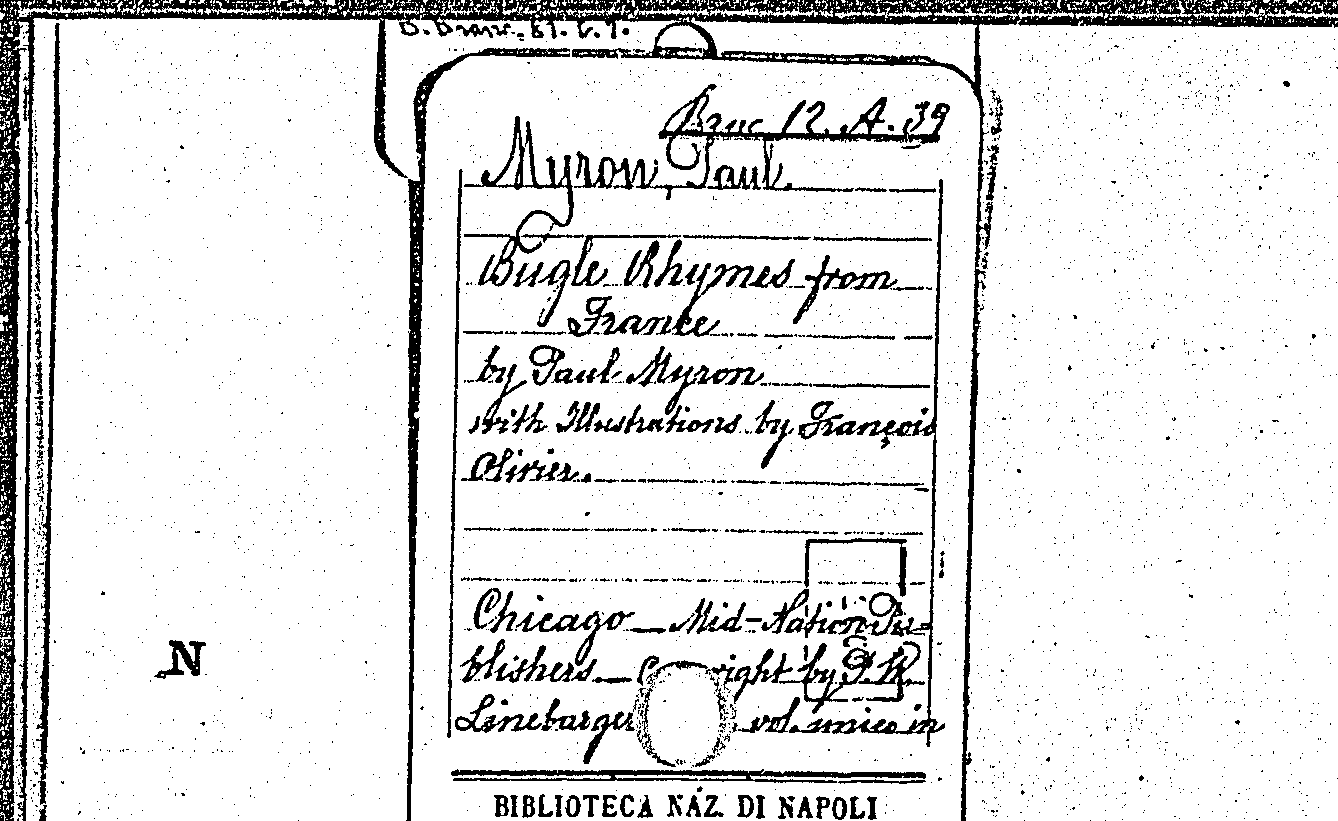 B. Branc. 61. C. 7.
Branc 12. A. 39
Myron, Paul.
Bugle Rhymes from
France
by Paul Myron
with Illustrations by François
Olivier.
Chicago — Mid-Nation Pu=
blishers — right by P. W.
Linebarger vol. unico in
N
BIBLIOTECA NAZ. DI NAPOLI